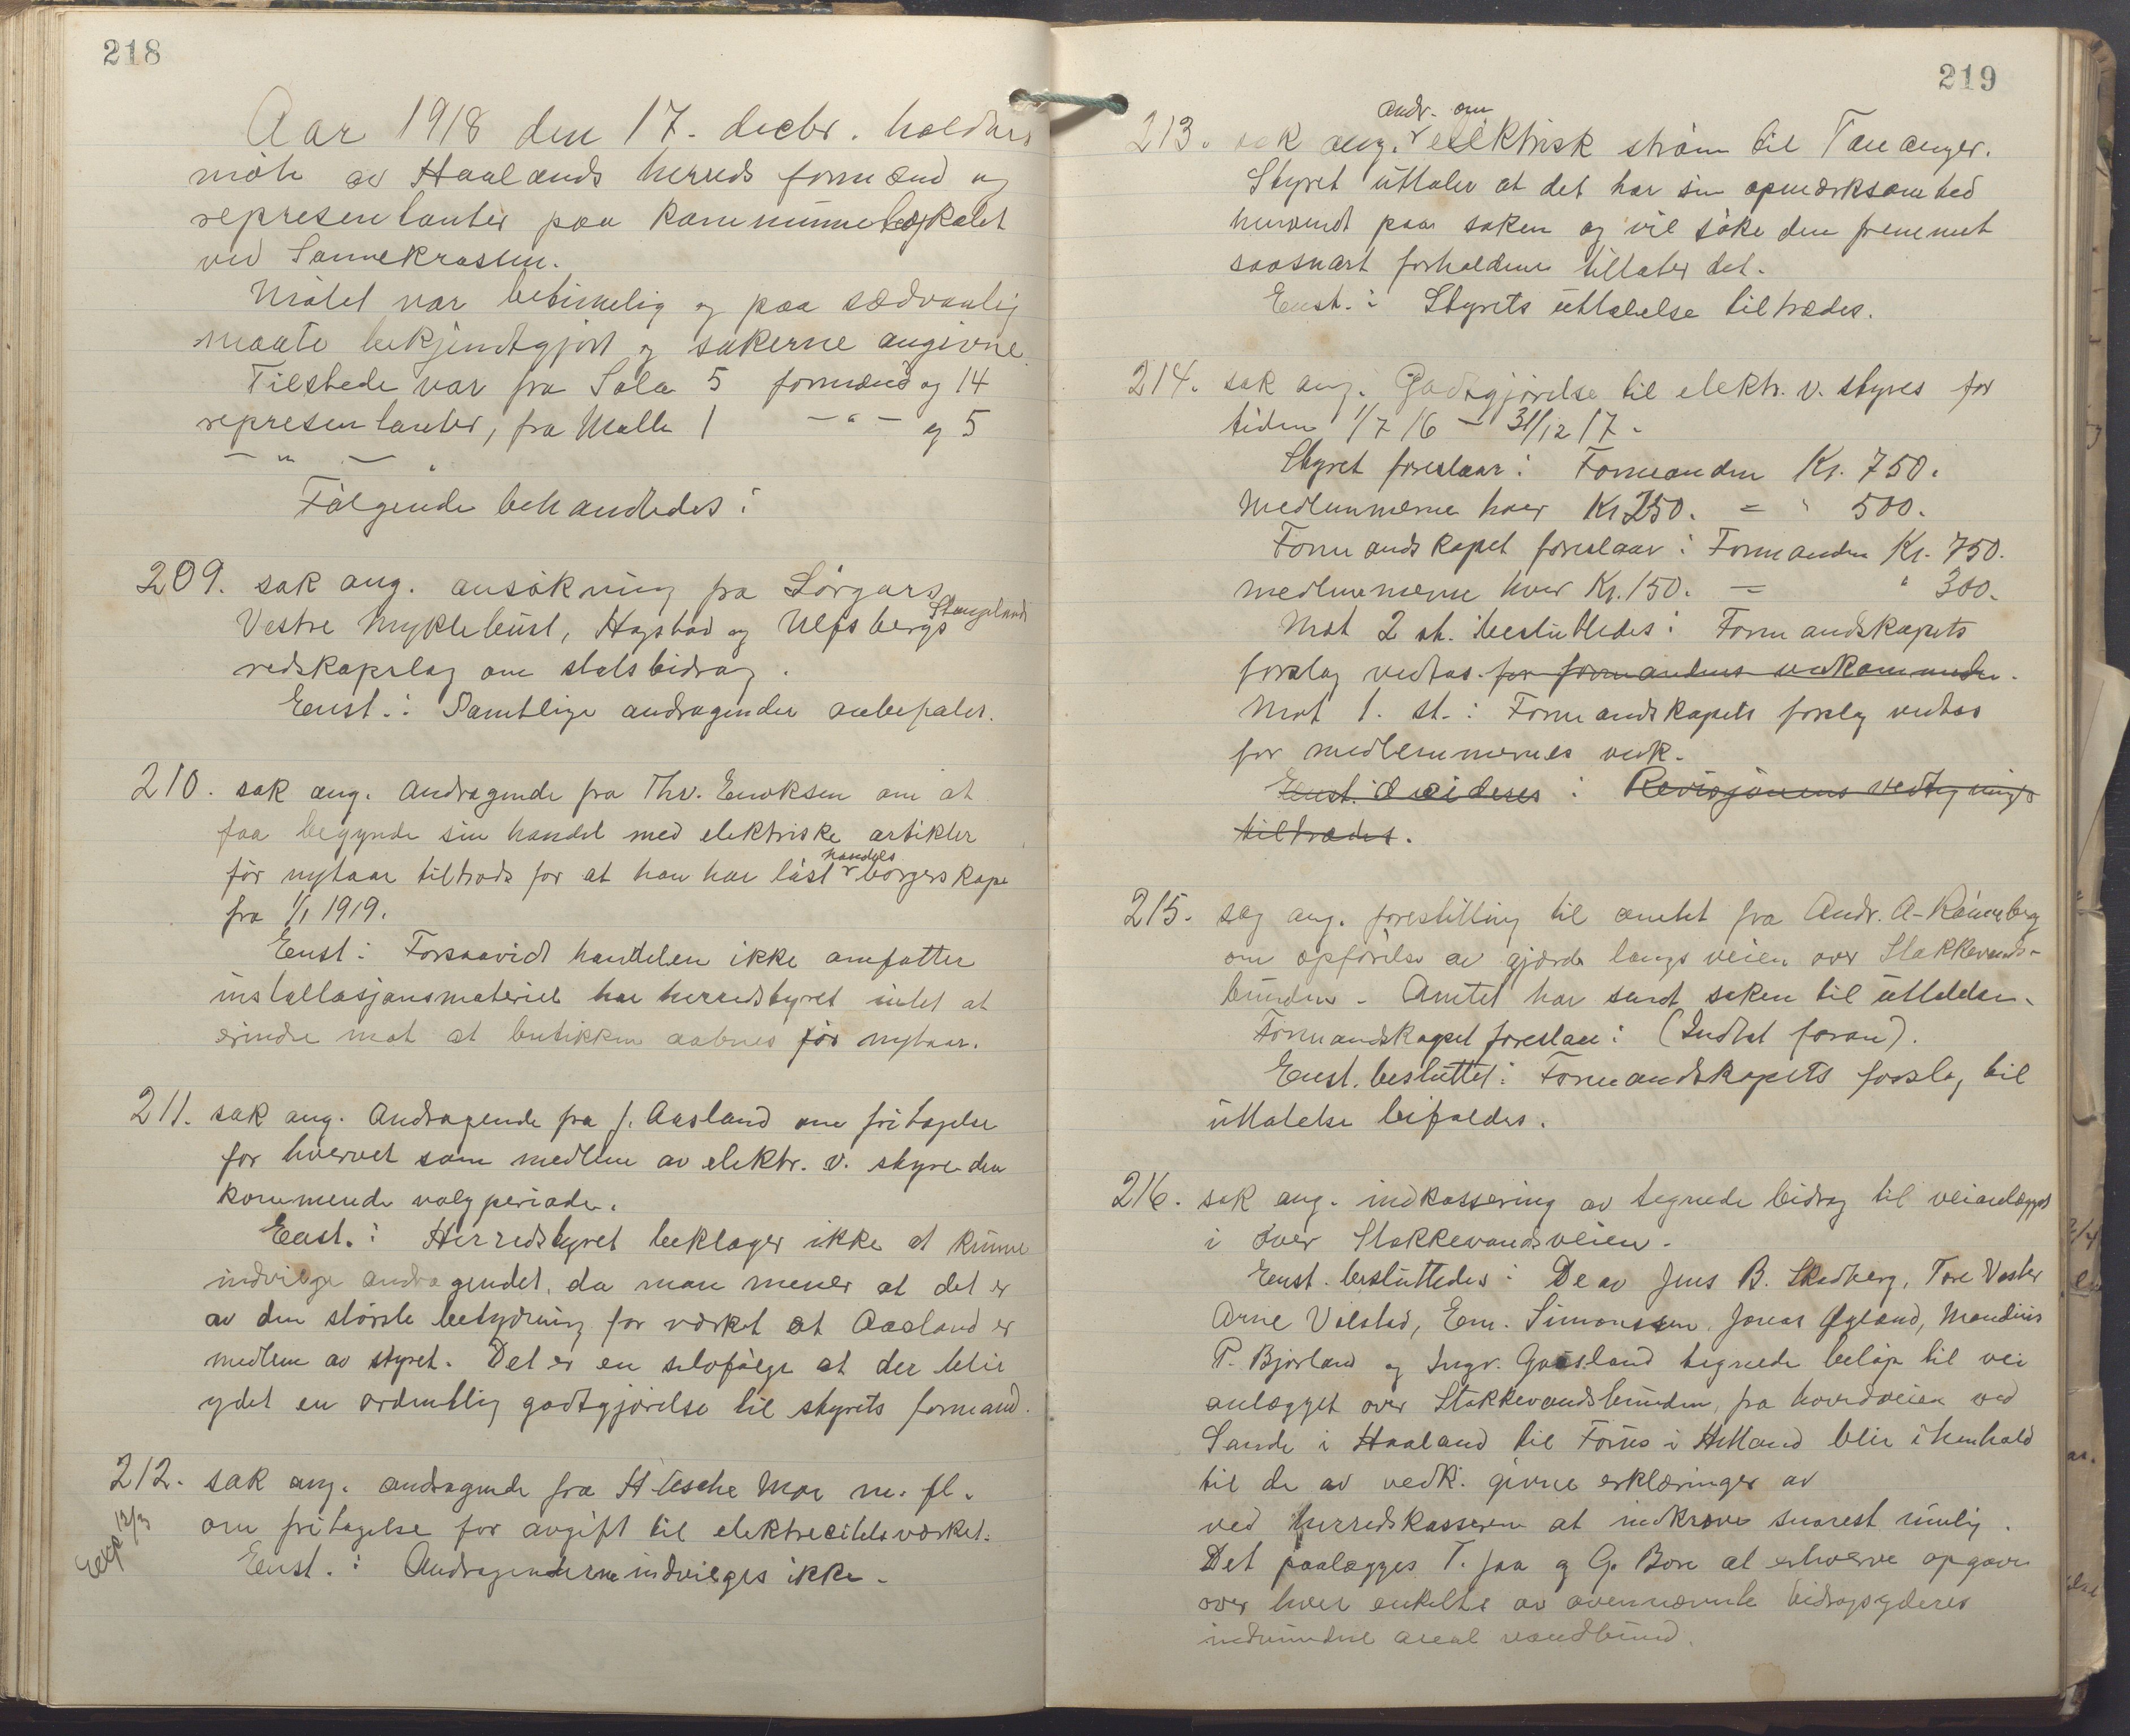 218
Aar 1918 den 17. decbr. holdtes
møte av Haalands herreds formænd og
representanter paa kommunelokalet
ved Sannekrossen.
Møtet var betimelig og paa sædvanlig
maate bekjendtgjort og sakerne angivne.
Tilstede var fra Sola 5 formænd og 14
representanter, fra Malle 1 — " — og 5
— " —
Følgende behandledes:
209. sak ang. ansøkning fra Sørgars,
Stangelands
Vestre Myklebust, Hogstad og Ulfsbergs
redskapslag om statsbidrag.
Enst.: Samtlige andragender anbefales.
210. sak ang. andragende fra Thv. Enoksen om at
faa begynde sin handel med elektriske artikler
handels
før nytaar tiltrods for at han har løst borgerskap
fra 1/1 1919.
Enst: Forsaavidt handelen ikke omfatter
installasjonsmateriel har herredstyret intet at
erindre mot at butikken aabnes før nytaar.
211. sak ang. Andragende fra J. Aasland om fritagelse
for hvervet som medlem av elektr. v. styre den
kommende valgperiode.
Enst.: Herredstyret beklager ikke at kunne
indvilge andragendet, da man mener at det er
av den største betydning for verket at Aasland er
medlem av styret. Det er en selvfølge at der blir
ydet en ordentlig godtgjørelse til styrets formand.
212. sak ang. andragende fra H. Tesche Moe m. fl.
om fritagelse for avgift til elektrecitetsverket.
Exp 12/3
Enst.: Andragenderne indvilges ikke.
219
andr. om
213. sak ang. elektrisk strøm til Tananger.
Styret uttaler at det har sin opmerksomhed
henvendt paa saken og vil søke den fremmet
saasnart forholdene tillater det.
Enst.: Styrets uttalelse tiltrædes.
214. sak ang. Godtgjørelse til elektr. v. styres for
tiden 1/7 16 – 31/12 17.
Styret foreslaar: Formanden Kr. 750.
Medlemmerne hver Kr 250. = " 500.
Formandskapet foreslaar: Formanden Kr. 750.
medlemmerne hver Kr. 150. = " 300.
Mot 2 st. besluttedes: Formandskapets
forslag vedtas for formandens vedkommende.
Mot 1. st.: Formandskapets forslag vedtas
for medlemmernes vedk.
Enst. decideres: Revisjonens vedtegning
tiltrædes.
215. sag ang. forestilling til amtet fra Andr. A. Rønneberg
om opførelse av gjærde langs veien over Stokkevands-
bunden. Amtet har sendt saken til uttalelse.
Formandskapet foreslaar: (Indtat foran).
Enst. besluttet: Formandskapets forslag til
uttalelse bifaldes.
216. sak ang. indkassering av tegnede bidrag til veianlægget
i over Stokkevandsveien.
Enst. besluttedes: De av Jens B. Skadberg, Tore Vaster
Arne Volstad, Em. Simonsen, Jonas Øgland, Mandius
P. Bjorland og Ingv. Gaasland tegnede beløp til vei
anlægget over Stokkevandsbunden, fra hovedveien ved
Sande i Haaland til Forus i Hetland blir i henhold
til de av vedk. givne erklæringer av
ved herredskassereren at indkræve snarest mulig.
Det paalægges T. Jaa og G. Bore at erhverve opgave
over hver enkelte av ovennævnte bidragsyderes
indvundne areal vandbund.